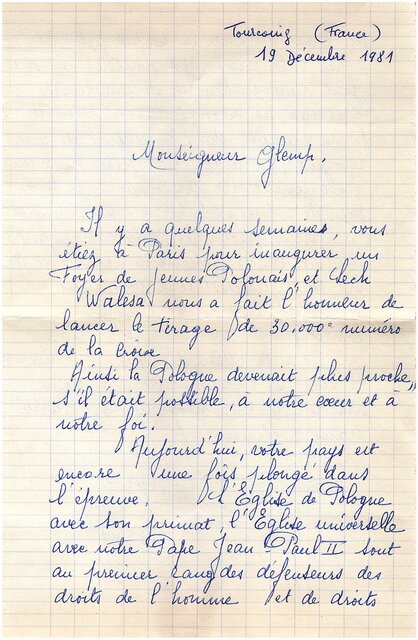 Tourcoing (France)
19 Décembre 1981
Monseigneur Glemp.
Il y a quelques semaines, vous
étiez à Paris pour inaugurer un
Foyer de jeunes Polonais, et Lech
Walesa nous a fait l'honneur de
lancer le tirage de 30.000e numéro
de la Croix
Ainsi la Pologne devenait plus proche,
s'il était possible, à notre cœur et à
notre foi.
Aujourd'hui, votre pays est
encore une fois plongé dans
l'épreuve. L'Église de Pologne
avec son primat, l'Église universelle
avec notre Pape Jean-Paul II sont
au premier rang des défenseurs des
droits de l'homme et de droits